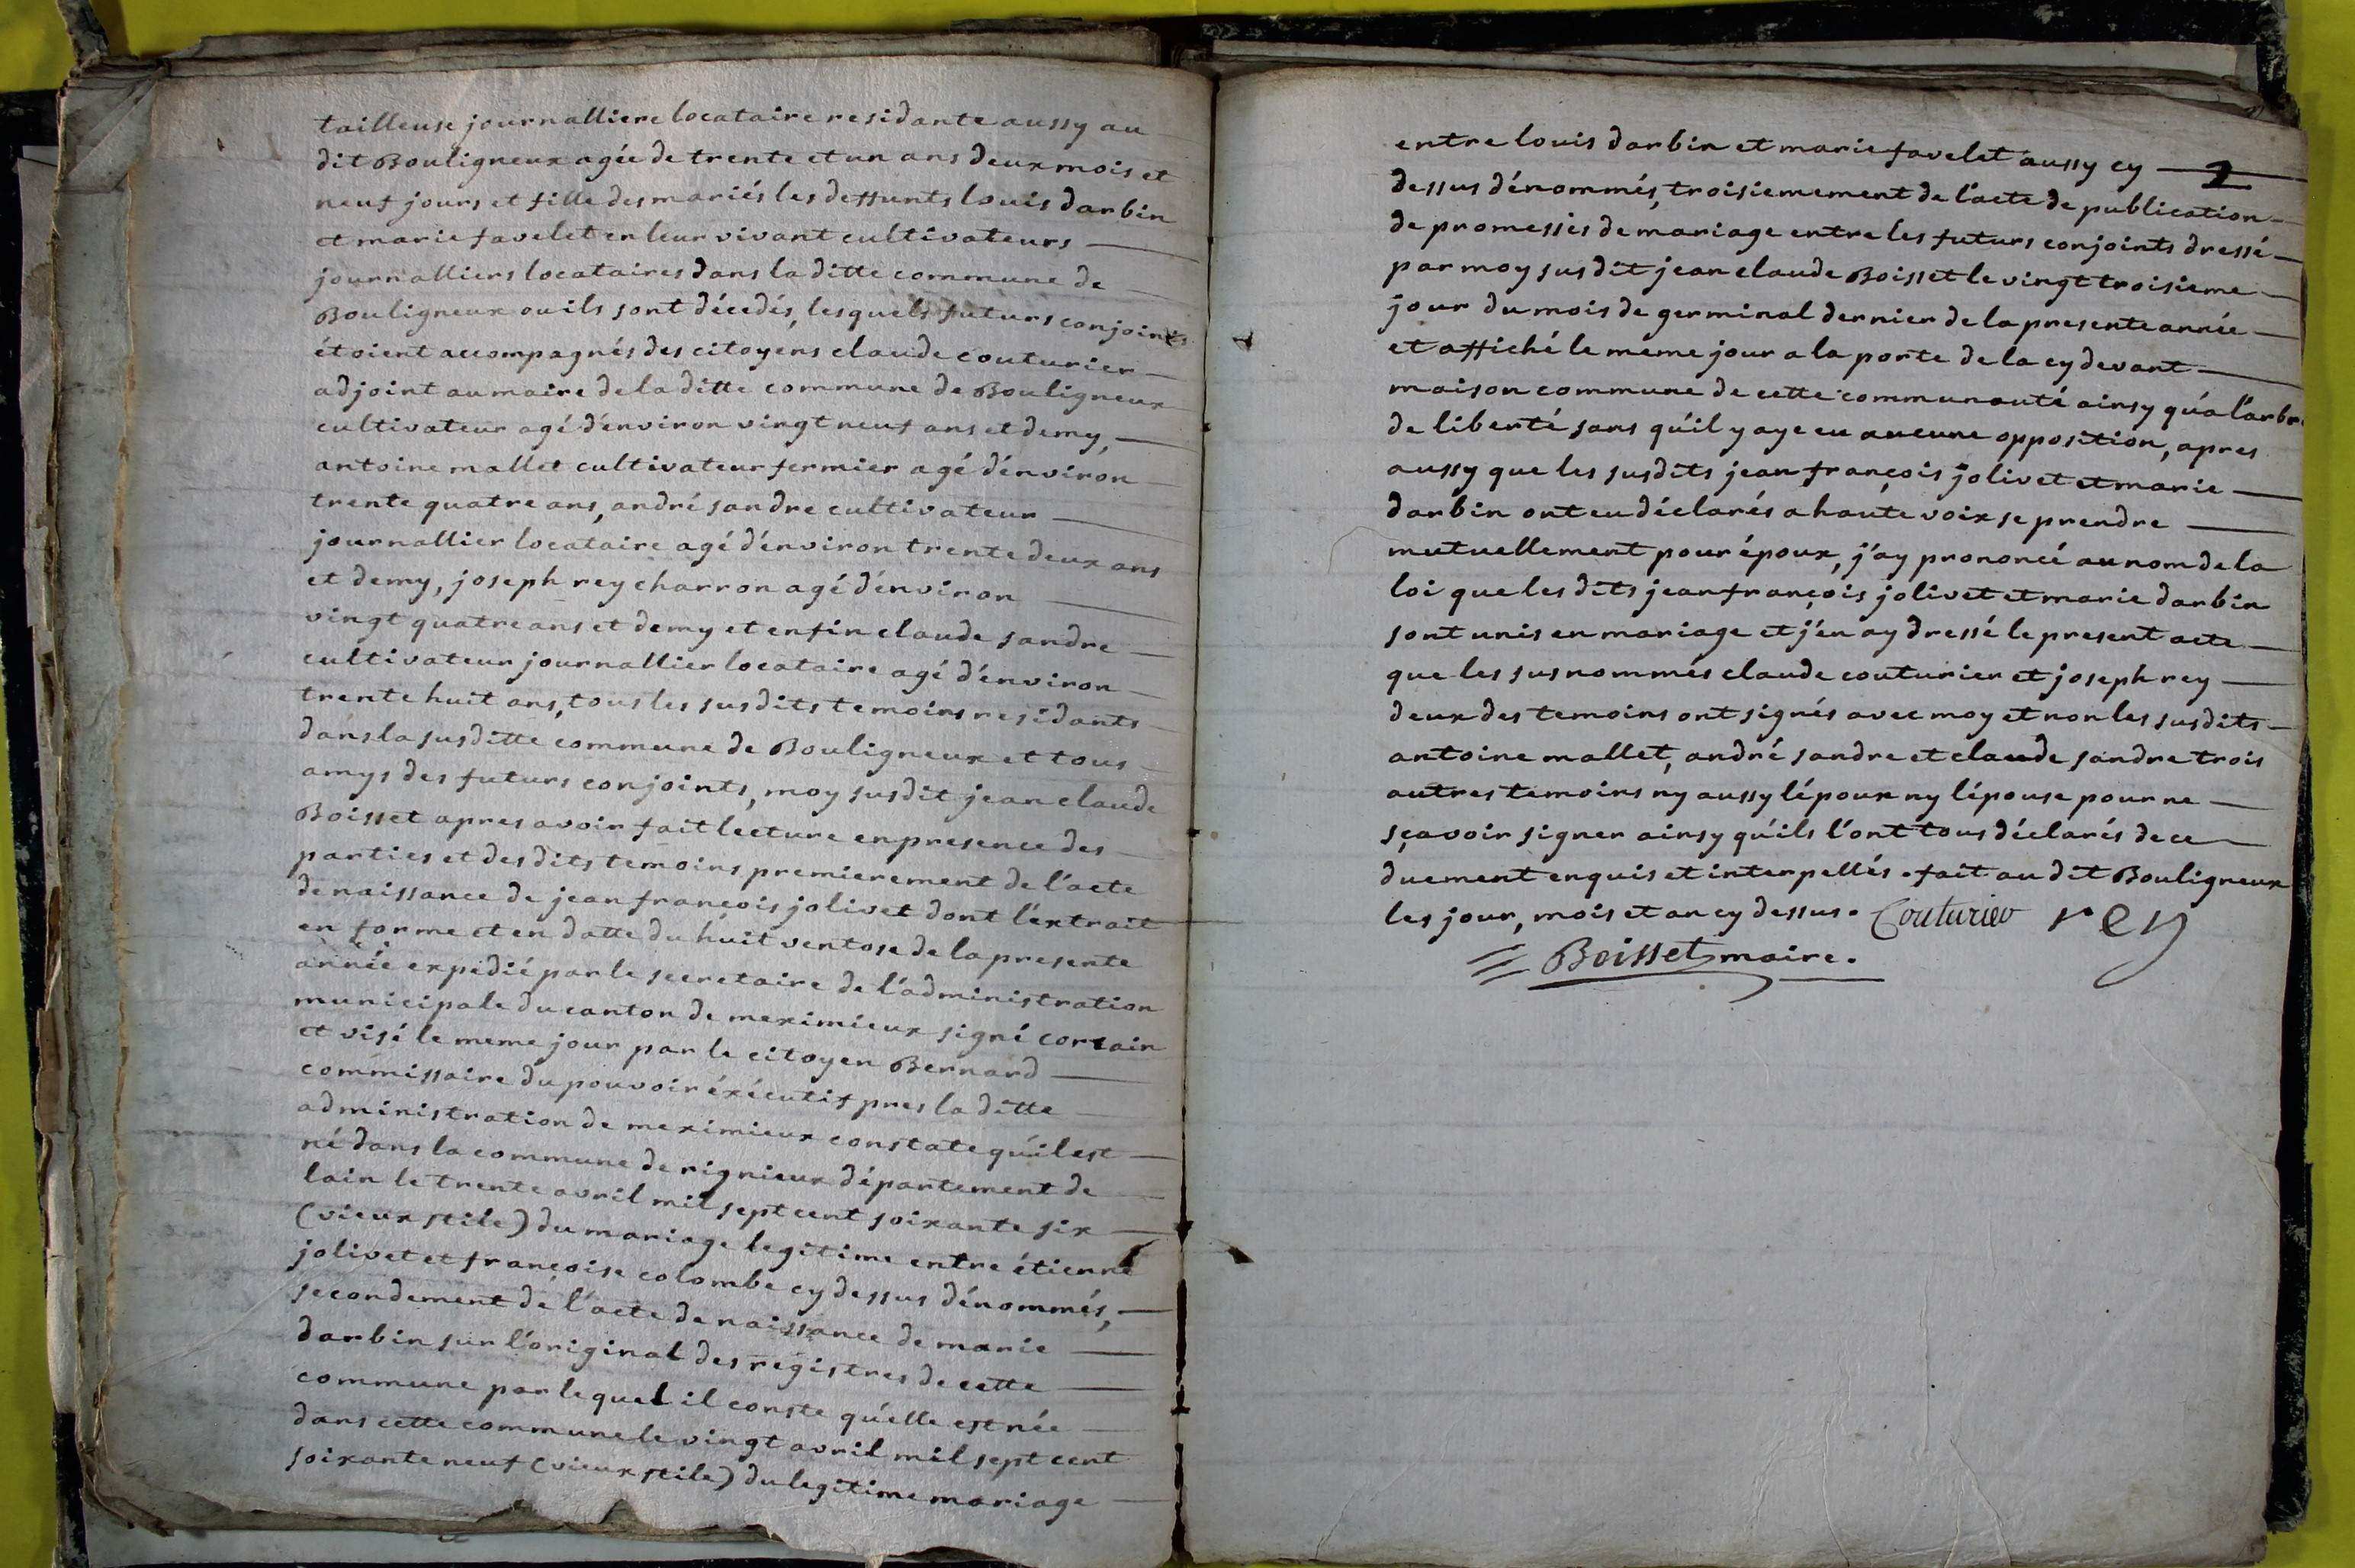 tailleuse journalliere locataire residante aussy au
dit Bouligneux agée de trente et un ans deux mois et
neuf jours et fille des mariés les deffunts louis darbin
et marie favelet en leur vivant cultivateurs
journalliers locataires dans la ditte commune de
Bouligneux ou ils sont décedés, lesquels futurs conjoints
étoient accompagnés des citoyens claude couturier
adjoint au maire de la ditte commune de Bouligneux
cultivateur agé d'énviron vingt neuf ans et demy,
antoine mallet cultivateur fermier agé d'énviron
trente quatre ans, andré sandre cultivateur
journallier locataire agé d'énviron trente deux ans
et demy, joseph rey charron agé d'énviron
vingt quatre ans et demy et enfin claude sandre
cultivateur journallier locataire agé d'énviron
trente huit ans, tous les susdits temoins residants
dans la susditte commune de Bouligneux et tous
amys des futurs conjoints, moy susdit jean claude
Boisset apres avoir fait lecture en presence des
parties et des dits temoins premierement de l'acte
de naissance de jean françois jolivet dont l'éxtrait
en forme et en datte du huit ventose de la presente
année expedié par le secretaire de l'administration
municipale du canton de meximieux signé corsain
et visé le meme jour par le citoyen Bernard
commissaire du pouvoir éxécutif pres la ditte
administration de meximieux constate qu'il est
né dans la commune de rignieux département de
lain le trente avril mil sept cent soixante six
(vieux stile) du mariage legitime entre étienne
jolivet et françoise colombe cy dessus dénommés,
secondement de l'acte de naissance de marie
darbin sur l'original des registres de cette
commune par lequel il conste qu'elle est née
dans cette commune le vingt avril mil sept cent
soixante neuf (vieux stile) du legitime mariage
entre louis darbin et marie favelet aussy cy
2
dessus dénommés, troisiemement de l'acte de publication
de promesses de mariage entre les futurs conjoints dressé
par moy susdit jean claude Boisset le vingt troisieme
jour du mois de germinal dernier de la presente année
et affiché le meme jour a la porte de la cy devant
maison commune de cette communauté ainsy qu'a l'arbre
de liberté sans qu'il y aye eu aucune opposition, apres
aussy que les susdits jean françois jolivet et marie
darbin ont eu déclarés a haute voix se prendre
mutuellement pour époux, j'ay prononcé au nom de la
loi que les dits jean françois jolivet et marie darbin
sont unis en mariage et j'en ay dressé le present acte
que les susnommés claude couturier et joseph rey
deux des temoins ont signés avec moy et non les susdits
antoine mallet, andré sandre et claude sandre trois
autres temoins ny aussy l'époux ny l'épouse pour ne
sçavoir signer ainsy qu'ils l'ont tous déclarés de ce
duement enquis et interpellés. fait au dit Bouligneux
les jour, mois et an cy dessus. Couturier rey
Boisset maire.